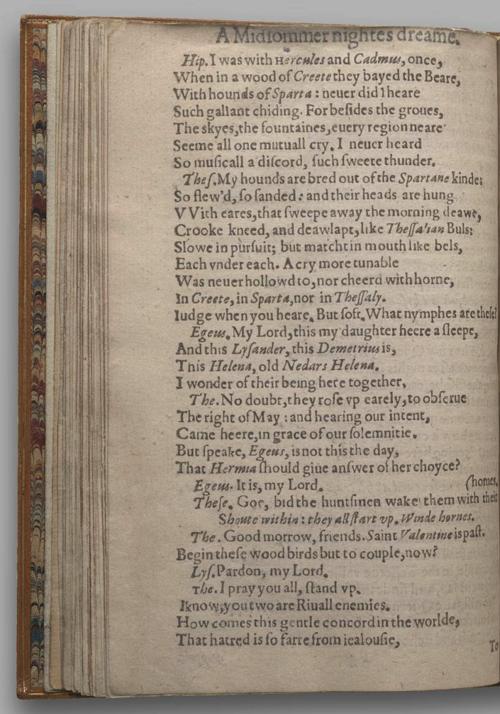 A Midsommer nightes dreame.
Hip. I was with Hercules and Cadmus, once,
When in a wood of Creete they bayed the Beare,
With hounds of Sparta: neuer did I heare
Such gallant chiding. For beſides the groues,
The skyes, the fountaines, euery region neare
Seeme all one mutuall cry. I neuer heard
So muſicall a diſcord, ſuch ſweete thunder.
Theſ. My hounds are bred out of the Spartane kinde;
So flew'd, ſo ſanded: and their heads are hung
VVith eares, that ſweepe away the morning deawe,
Crooke kneed, and deawlapt, like Theſſalian Buls:
Slowe in purſuit; but matcht in mouth like bels,
Each vnder each. A cry more tunable
Was neuer hollowd to, nor cheerd with horne,
In Creete, in Sparta, nor in Theſſaly.
Iudge when you heare. But ſoft. What nymphes are theſe?
Egeus. My Lord, this my daughter heere a ſleepe,
And this Lyſander, this Demetrius is,
This Helena, old Nedars Helena.
I wonder of their being here together,
The. No doubt, they roſe vp earely, to obſerue
The right of May: and hearing our intent,
Came heere, in grace of our ſolemnitie.
But ſpeake, Egeus, is not this the day,
That Hermia ſhould giue anſwer of her choyce?
Egeus. It is, my Lord. (hornes,
Theſe. Goe, bid the huntſmen wake them with their
Shoute within: they all ſtart vp. Winde hornes.
The. Good morrow, friends. Saint Valentine is paſt.
Begin theſe wood birds but to couple, now?
Lyſ. Pardon, my Lord.
The. I pray you all, ſtand vp.
I know, you two are Riuall enemies.
How comes this gentle concord in the worlde,
That hatred is ſo farre from iealouſie,
To